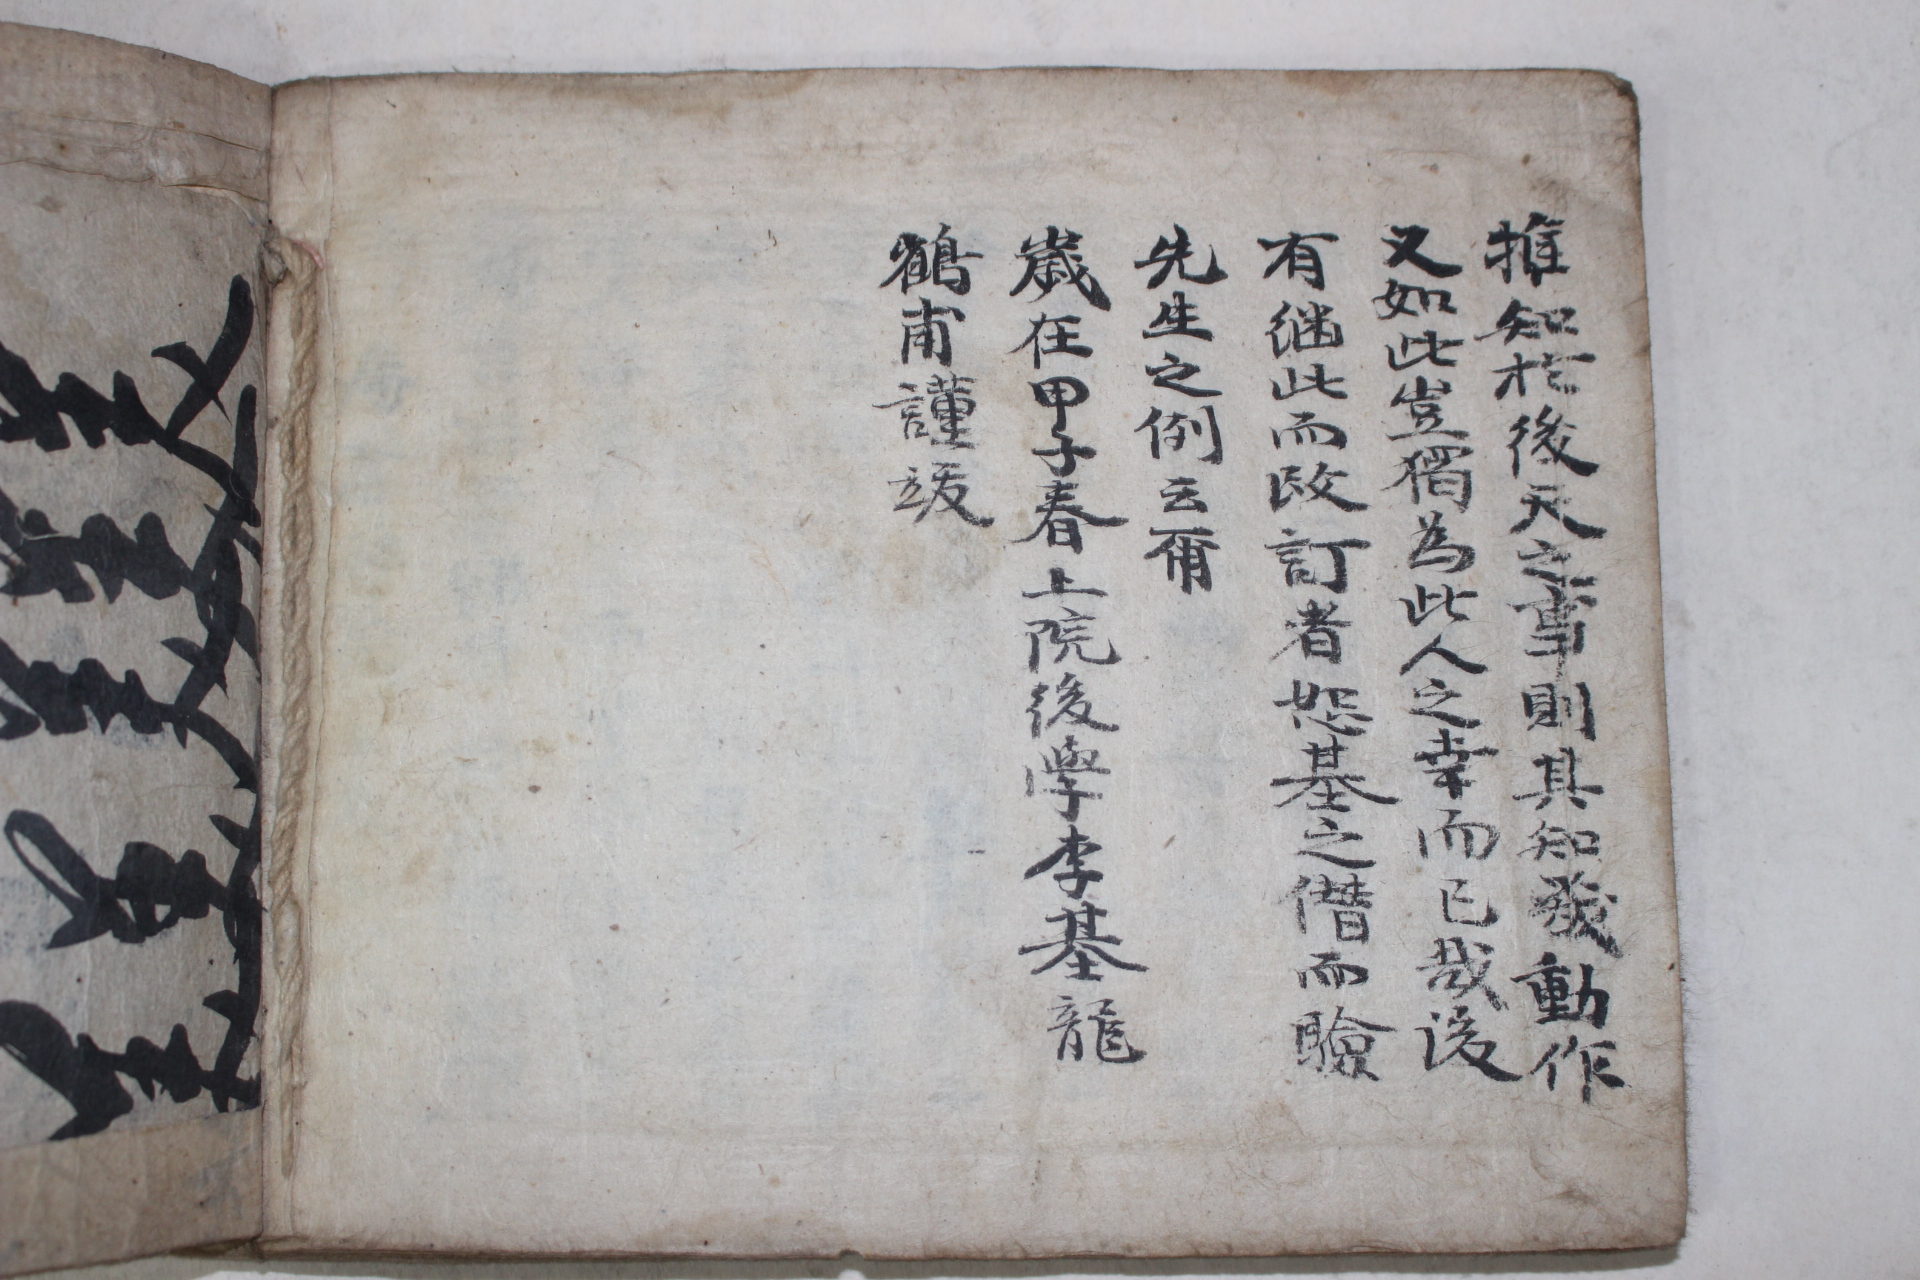 推知於後天之事則其知發動作
又如此豈獨為此人之幸而已哉後
有继此而改訂者恕基之僭而驗
先生之例云爾
歲在甲子春上院後學李基龍
鶴甫謹跋